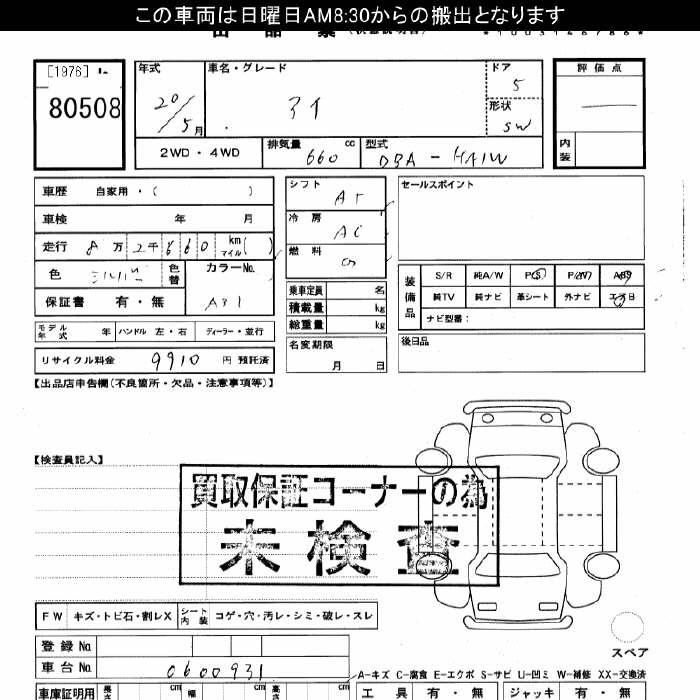 この車両は日曜日AM8:30からの搬出となります
[1976]
80508
年式
20/5月
車名・グレード
アイ
ドア
5
形状
SW
評価点
内装
2WD・4WD
排気量 660 cc
型式 DBA - HA1W
車歴 自家用・( )
車検 年 月
走行 8万2千660 km マイル( )
色 シルバー 色替
カラーNo. A31
保証書 有・無
シフト AT
冷房 AC
燃料 G
乗車定員 名
積載量 kg
総重量 kg
名変期限 月 日
セールスポイント
装備品
S/R 純A/W P/S P/W ABS
純TV 純ナビ 革シート 外ナビ エアB
ナビ型番:
後日品
モデル年式 年 ハンドル 左・右 ディーラー・並行
リサイクル料金 9910 円 預託済
【出品店申告欄(不良箇所・欠品・注意事項等)】
【検査員記入】
買取保証コーナーの為
未検査
FW キズ・トビ石・割レX シート内装 コゲ・穴・汚レ・シミ・破レ・スレ
登録No.
車台No. 0600931
スペア
A-キズ C-腐食 E-エクボ S-サビ U-凹ミ W-補修 XX-交換済
車庫証明用 長さ cm 幅 cm 高さ cm
工具 有・無 ジャッキ 有・無